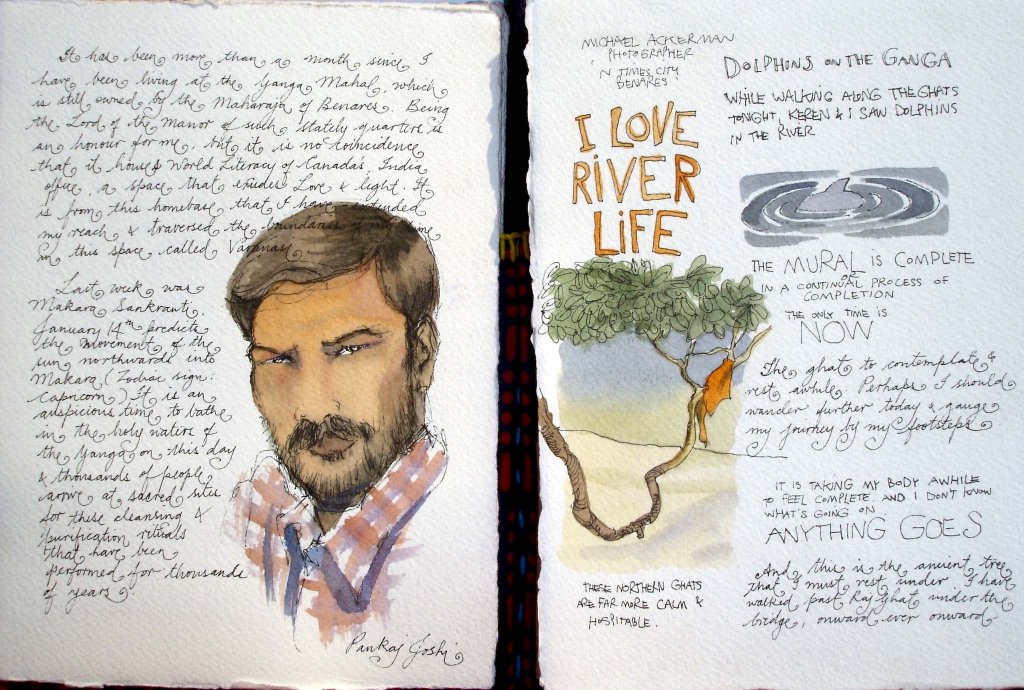 It has been more than a month since I
have been living at the Ganga Mahal, which
is still owned by the Maharaja of Benares. Being
the Lord of the Manor of such stately quarters is
an honour for me, but it is no coincidence
that it houses World Literacy of Canada's, India
office, a space that exudes Love & light. It
is from this homebase that I have extended
my reach & traversed the boundaries of my time
in this space called Varanasi.
Last week was
Makara Sankranti.
January 14th predicts
the movement of the
sun northwards into
Makara (Zodiac sign:
Capricorn.) It is an
auspicious time to bathe
in the holy waters of
the Ganga on this day
& thousands of people
arrive at sacred sites
for these cleansing &
purification rituals
that have been
performed for thousands
of years.
Pankaj Joshi
MICHAEL ACKERMAN
PHOTOGRAPHER
N TIMES CITY
BENARES
I LOVE
RIVER
LIFE
THESE NORTHERN GHATS
ARE FAR MORE CALM &
HOSPITABLE.
DOLPHINS ON THE GANGA
WHILE WALKING ALONG THE GHATS
TONIGHT, KEREN & I SAW DOLPHINS
IN THE RIVER
THE MURAL IS COMPLETE
OR
IN A CONTINUAL PROCESS OF
COMPLETION
THE ONLY TIME IS
NOW
The ghat to contemplate &
rest awhile. Perhaps I should
wander further today & gauge
my journey by my footsteps
IT IS TAKING MY BODY AWHILE
TO FEEL COMPLETE. AND I DON'T KNOW
WHAT'S GOING ON.
ANYTHING GOES
And this is the ancient tree
that I must rest under. I have
walked past Raj Ghat under the
bridge, onward ever onward